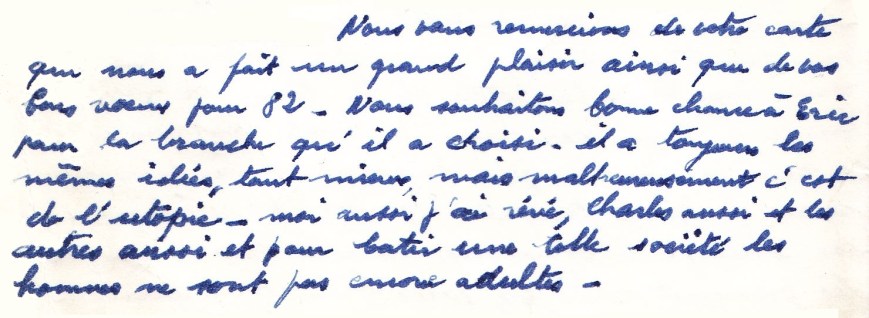 Nous vous remercions de votre carte
qui nous a fait un grand plaisir ainsi que de vos
bons voeux pour 82 - Nous souhaitons bonne chance à Eric
pour la branche qu'il a choisi - il a toujours les
mêmes idées, tant mieux, mais malheureusement c'est
de l'utopie - moi aussi j'ai rêvé, Charles aussi et les
autres aussi et pour batir une telle société les
hommes ne sont pas encore adultes -